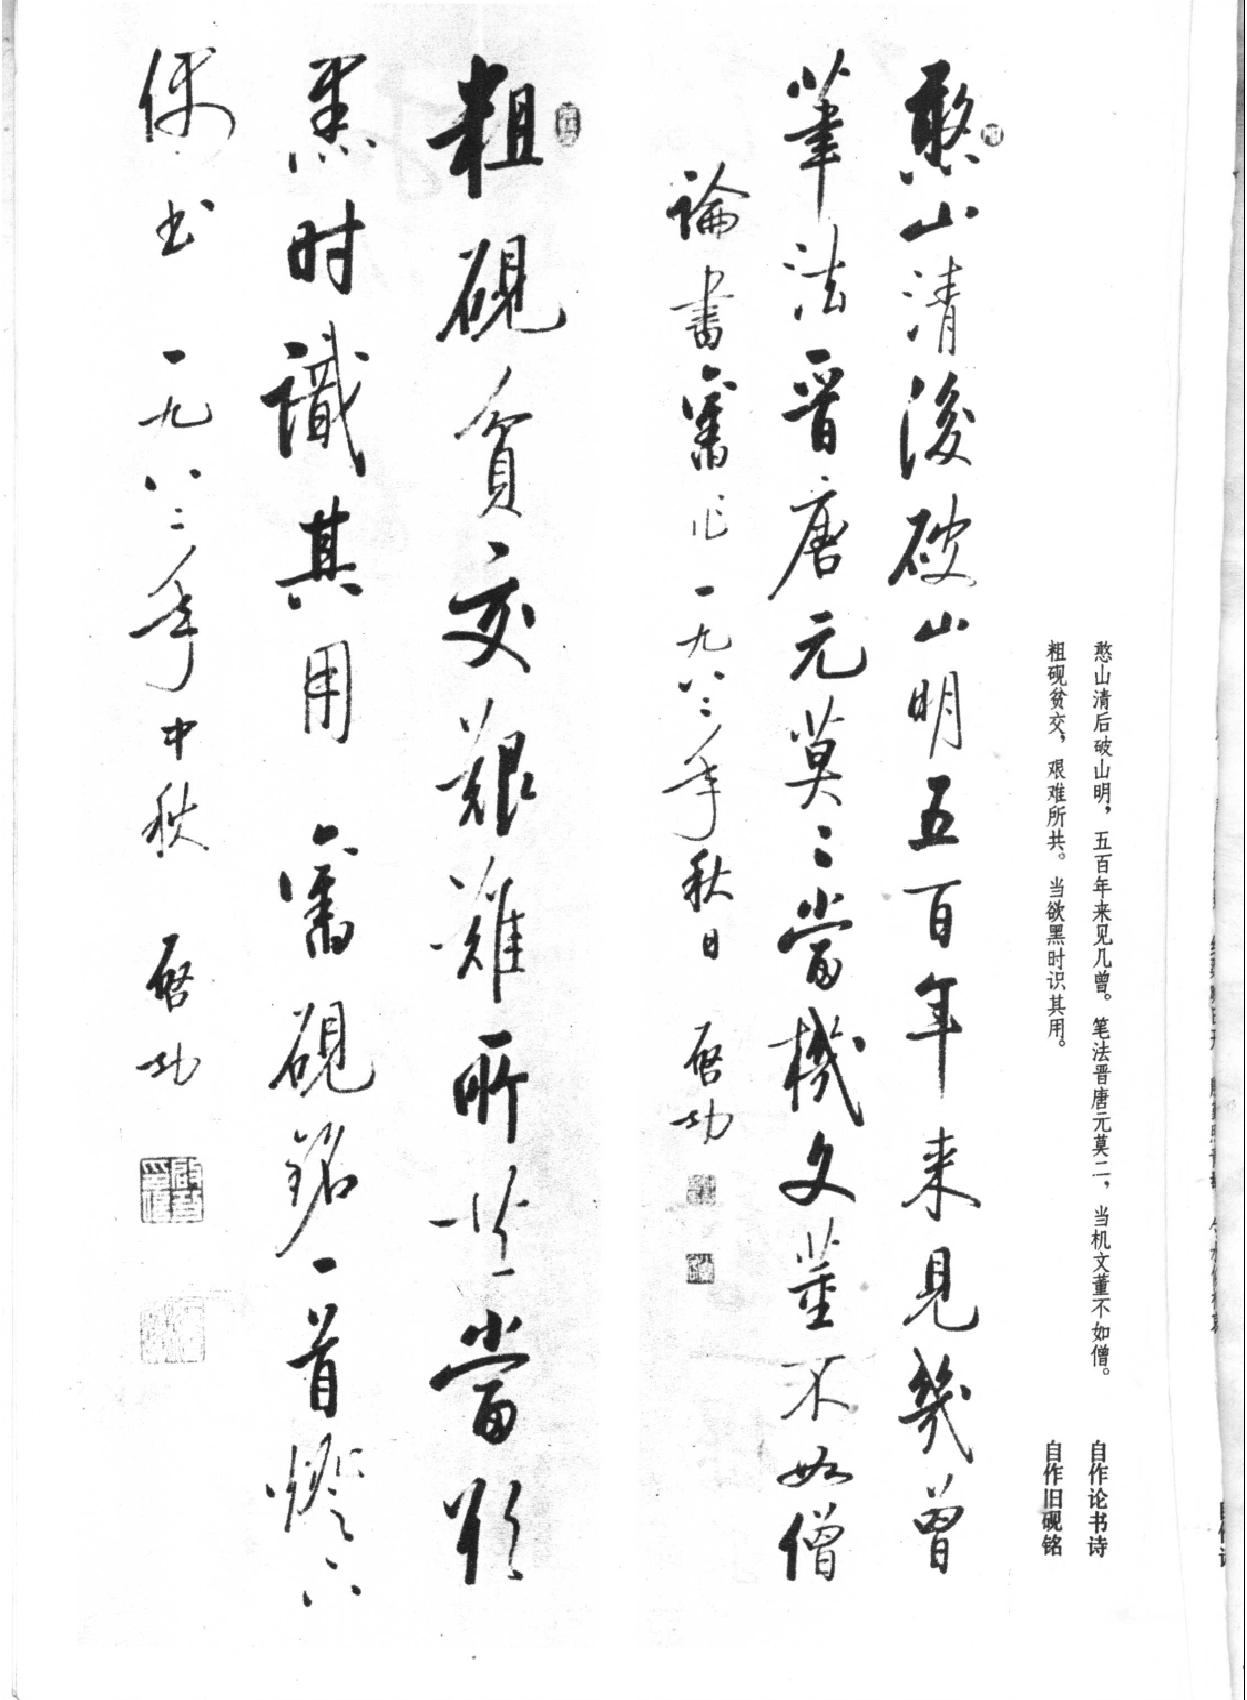 憨山清後破山明五百年来見幾曾
筆法晋唐元莫二當機文董不如僧
論書舊作一九八二年秋日 啓功
粗硯貧交艱難所共當欲
黑时識其用 舊硯銘一首燈下
偶书 一九八二年中秋 啓功
憨山清后破山明，五百年来见几曾。笔法晋唐元莫二，当机文董不如僧。 自作论书诗
粗砚贫交，艰难所共。当欲黑时识其用。 自作旧砚铭